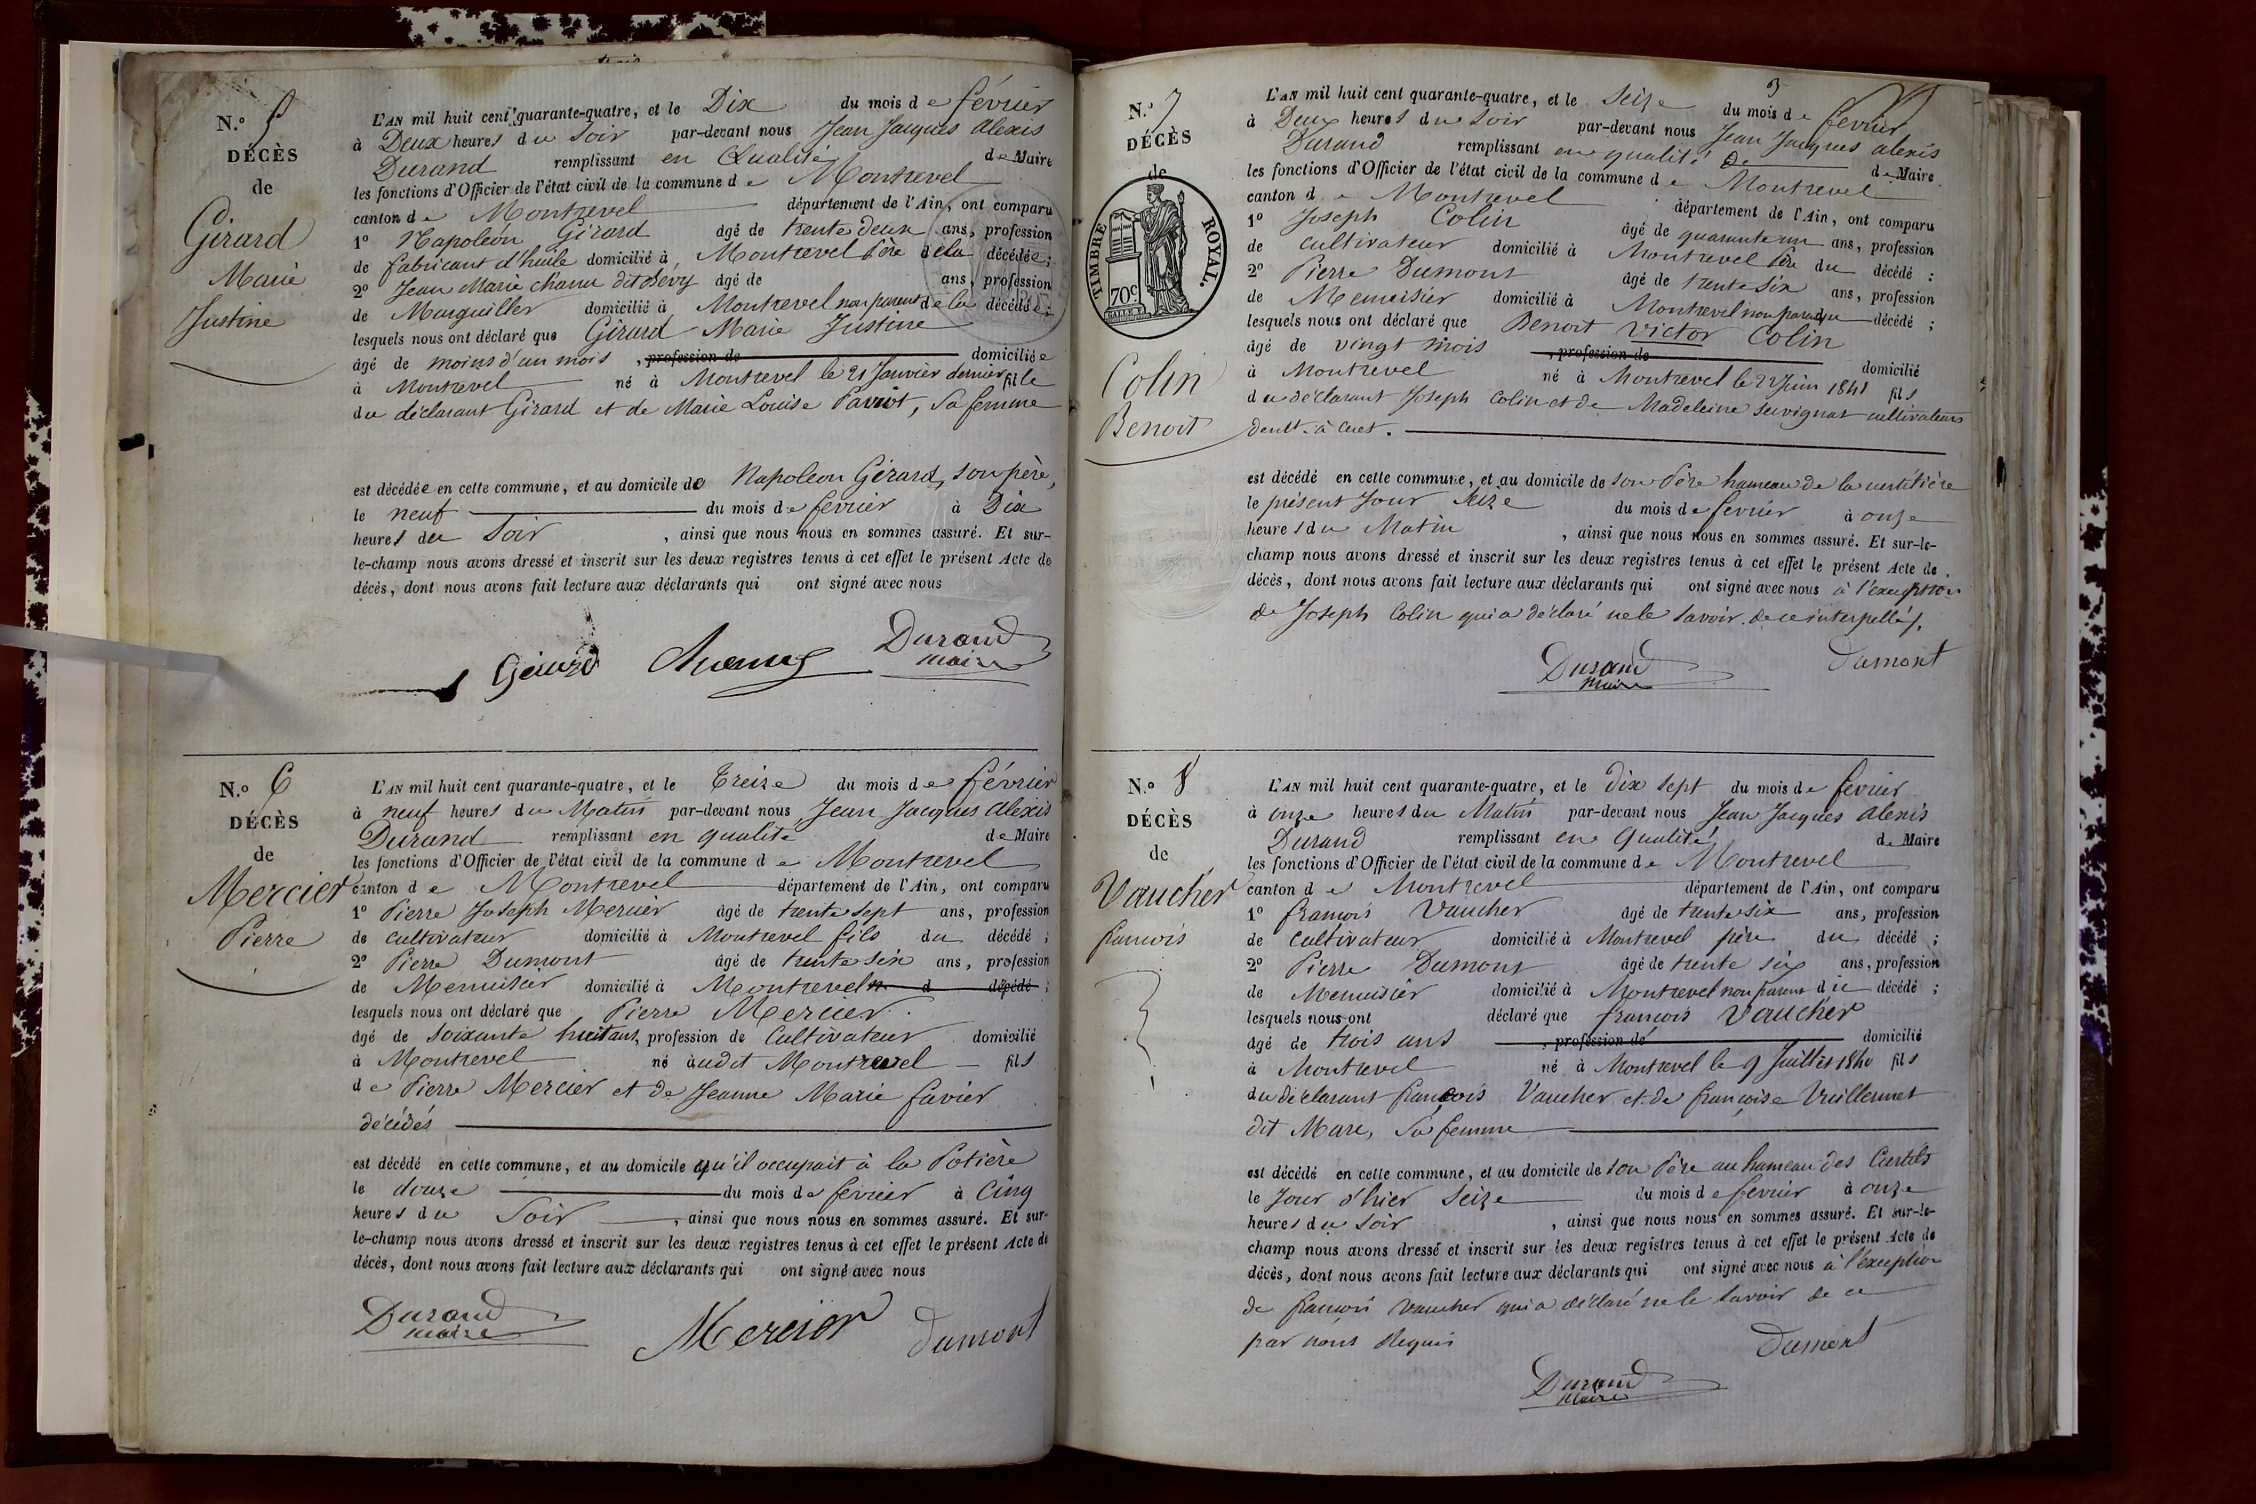 N.º 5
DÉCÈS
de
Girard
Marie
Justine
L'AN mil huit cent quarante-quatre, et le Dix du mois de février
à Deux heures du Soir par-devant nous Jean Jacques Alexis
Durand remplissant en Qualité de Maire
les fonctions d'Officier de l'état civil de la commune de Montrevel
canton de Montrevel département de l'Ain, ont comparu
1º Napoléon Girard âgé de trente deux ans, profession
de fabricant d'huile domicilié à Montrevel Père de la décédée ;
2º Jean Marie Chanu dit âgé de ans, profession
de Marguillier domicilié à Montrevel non parent de la décédée ;
lesquels nous ont déclaré que Girard Marie Justine
âgé de moins d'un mois , profession de domiciliée
à Montrevel né à Montrevel le 21 Janvier dernier fille
du déclarant Girard et de Marie Louise Paviot, Sa femme
est décédée en cette commune, et au domicile de Napoleon Girard, son père,
le neuf du mois de février à Dix
heures du Soir , ainsi que nous nous en sommes assuré. Et sur-
le-champ nous avons dressé et inscrit sur les deux registres tenus à cet effet le présent Acte de
décès, dont nous avons fait lecture aux déclarants qui ont signé avec nous
Girard Durand
maire
N.º 6
DÉCÈS
de
Mercier
Pierre
L'AN mil huit cent quarante-quatre, et le Treize du mois de février
à neuf heures du Matin par-devant nous Jean Jacques Alexis
Durand remplissant en qualité de Maire
les fonctions d'Officier de l'état civil de la commune de Montrevel
canton de Montrevel département de l'Ain, ont comparu
1º Pierre Joseph Mercier âgé de trente sept ans, profession
de cultivateur domicilié à Montrevel fils du décédé ;
2º Pierre Dumont âgé de trente six ans, profession
de Menuisier domicilié à Montrevel d décédé ;
lesquels nous ont déclaré que Pierre Mercier
âgé de soixante huit ans, profession de Cultivateur domicilié
à Montrevel né audit Montrevel fils
de Pierre Mercier et de Jeanne Marie favier
décédés
est décédé en cette commune, et au domicile qu'il occupait à la Potière
le douze du mois de fevrier à Cinq
heures du Soir , ainsi que nous nous en sommes assuré. Et sur-
le-champ nous avons dressé et inscrit sur les deux registres tenus à cet effet le présent Acte de
décès, dont nous avons fait lecture aux déclarants qui ont signé avec nous
Durand Mercier Dumont
maire
3
N.º 7
DÉCÈS
de
TIMBRE ROYAL.
70c.
Colin
Benoit
L'AN mil huit cent quarante-quatre, et le Seize du mois de fevrier
à Deux heures du Soir par-devant nous Jean Jacques alexis
Durand remplissant en qualité de de Maire
les fonctions d'Officier de l'état civil de la commune de Montrevel
canton de Montrevel département de l'Ain, ont comparu
1º Joseph Colin âgé de quarante un ans, profession
de Cultivateur domicilié à Montrevel Père du décédé ;
2º Pierre Dumont âgé de trente six ans, profession
de Menuisier domicilié à Montrevel non parent du décédé ;
lesquels nous ont déclaré que Benoit Victor Colin
âgé de vingt mois , profession de domicilié
à Montrevel né à Montrevel le 22 Juin 1841 fils
du déclarant Joseph Colin et de Madeleine Suvignat cultivateurs
demt. à Cuet.
est décédé en cette commune, et au domicile de son Père hameau de la
le présent Jour Seize du mois de fevrier à onze
heures du Matin , ainsi que nous nous en sommes assuré. Et sur-le-
champ nous avons dressé et inscrit sur les deux registres tenus à cet effet le présent Acte de
décès, dont nous avons fait lecture aux déclarants qui ont signé avec nous à l'exception
de Joseph Colin qui a déclaré ne le savoir de ce interpellé.
Durand Dumont
maire
N.º 8
DÉCÈS
de
Vaucher
francois
L'AN mil huit cent quarante-quatre, et le Dix Sept du mois de fevrier
à onze heures du Matin par-devant nous Jean Jacques Alexis
Durand remplissant en Qualité de Maire
les fonctions d'Officier de l'état civil de la commune de Montrevel
canton de Montrevel département de l'Ain, ont comparu
1º françois Vaucher âgé de trente six ans, profession
de Cultivateur domicilié à Montrevel père du décédé ;
2º Pierre Dumont âgé de trente six ans, profession
de Menuisier domicilié à Montrevel non parent du décédé ;
lesquels nous ont déclaré que francois Vaucher
âgé de trois ans , profession de domicilié
à Montrevel né à Montrevel le 9 Juillet 1840 fils
du déclarant françois Vaucher et de françoise Vuillermet
dit Mare, Sa femme
est décédé en cette commune, et au domicile de son Père au hameau des Curtils
le Jour d'hier Seize du mois de fevrier à onze
heures du soir , ainsi que nous nous en sommes assuré. Et sur-le-
champ nous avons dressé et inscrit sur les deux registres tenus à cet effet le présent Acte de
décès, dont nous avons fait lecture aux déclarants qui ont signé avec nous à l'exception
de francois Vaucher qui a déclaré ne le savoir de ce
par nous Requis
Dumont
Durand
Maire